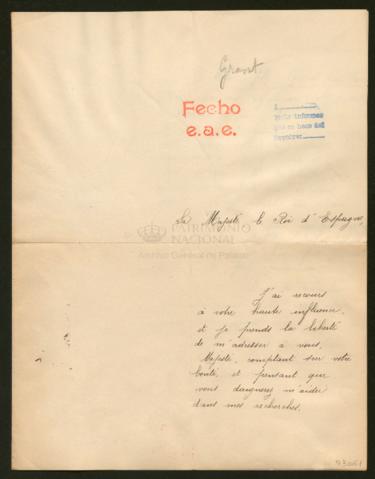 Grant
Fecho
e.a.e.
Pide informes
que se hace del
Sa Majesté le Roi d'Espagne,
PATRIMONIO
NACIONAL
Archivo General de Palacio
J'ai recours
à votre haute influence,
et je prends la liberté
de m'adresser à vous,
Majesté, comptant sur votre
bonté, et pensant que
vous daignerez m'aider
dans mes recherches.